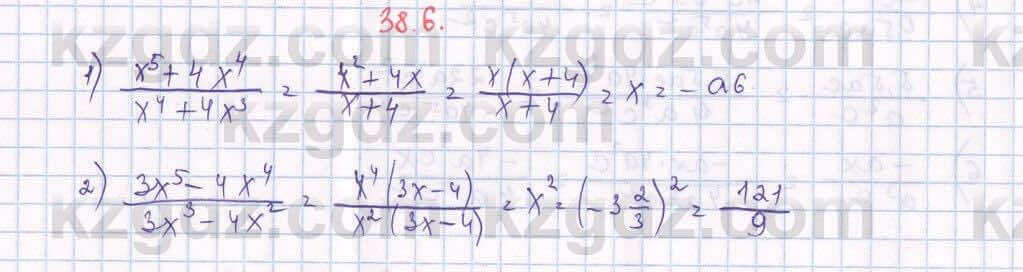 38.6.
1) (x⁵ + 4x⁴)/(x⁴ + 4x³) = (x² + 4x)/(x + 4) = x(x + 4)/(x + 4) = x = - 0.6
2) (3x⁵ - 4x⁴)/(3x³ - 4x²) = x⁴(3x - 4)/(x²(3x - 4)) = x² = (-3 2/3)² = 121/9
kzgdz.com kzgdz.com
kzgdz.com kzgdz.com